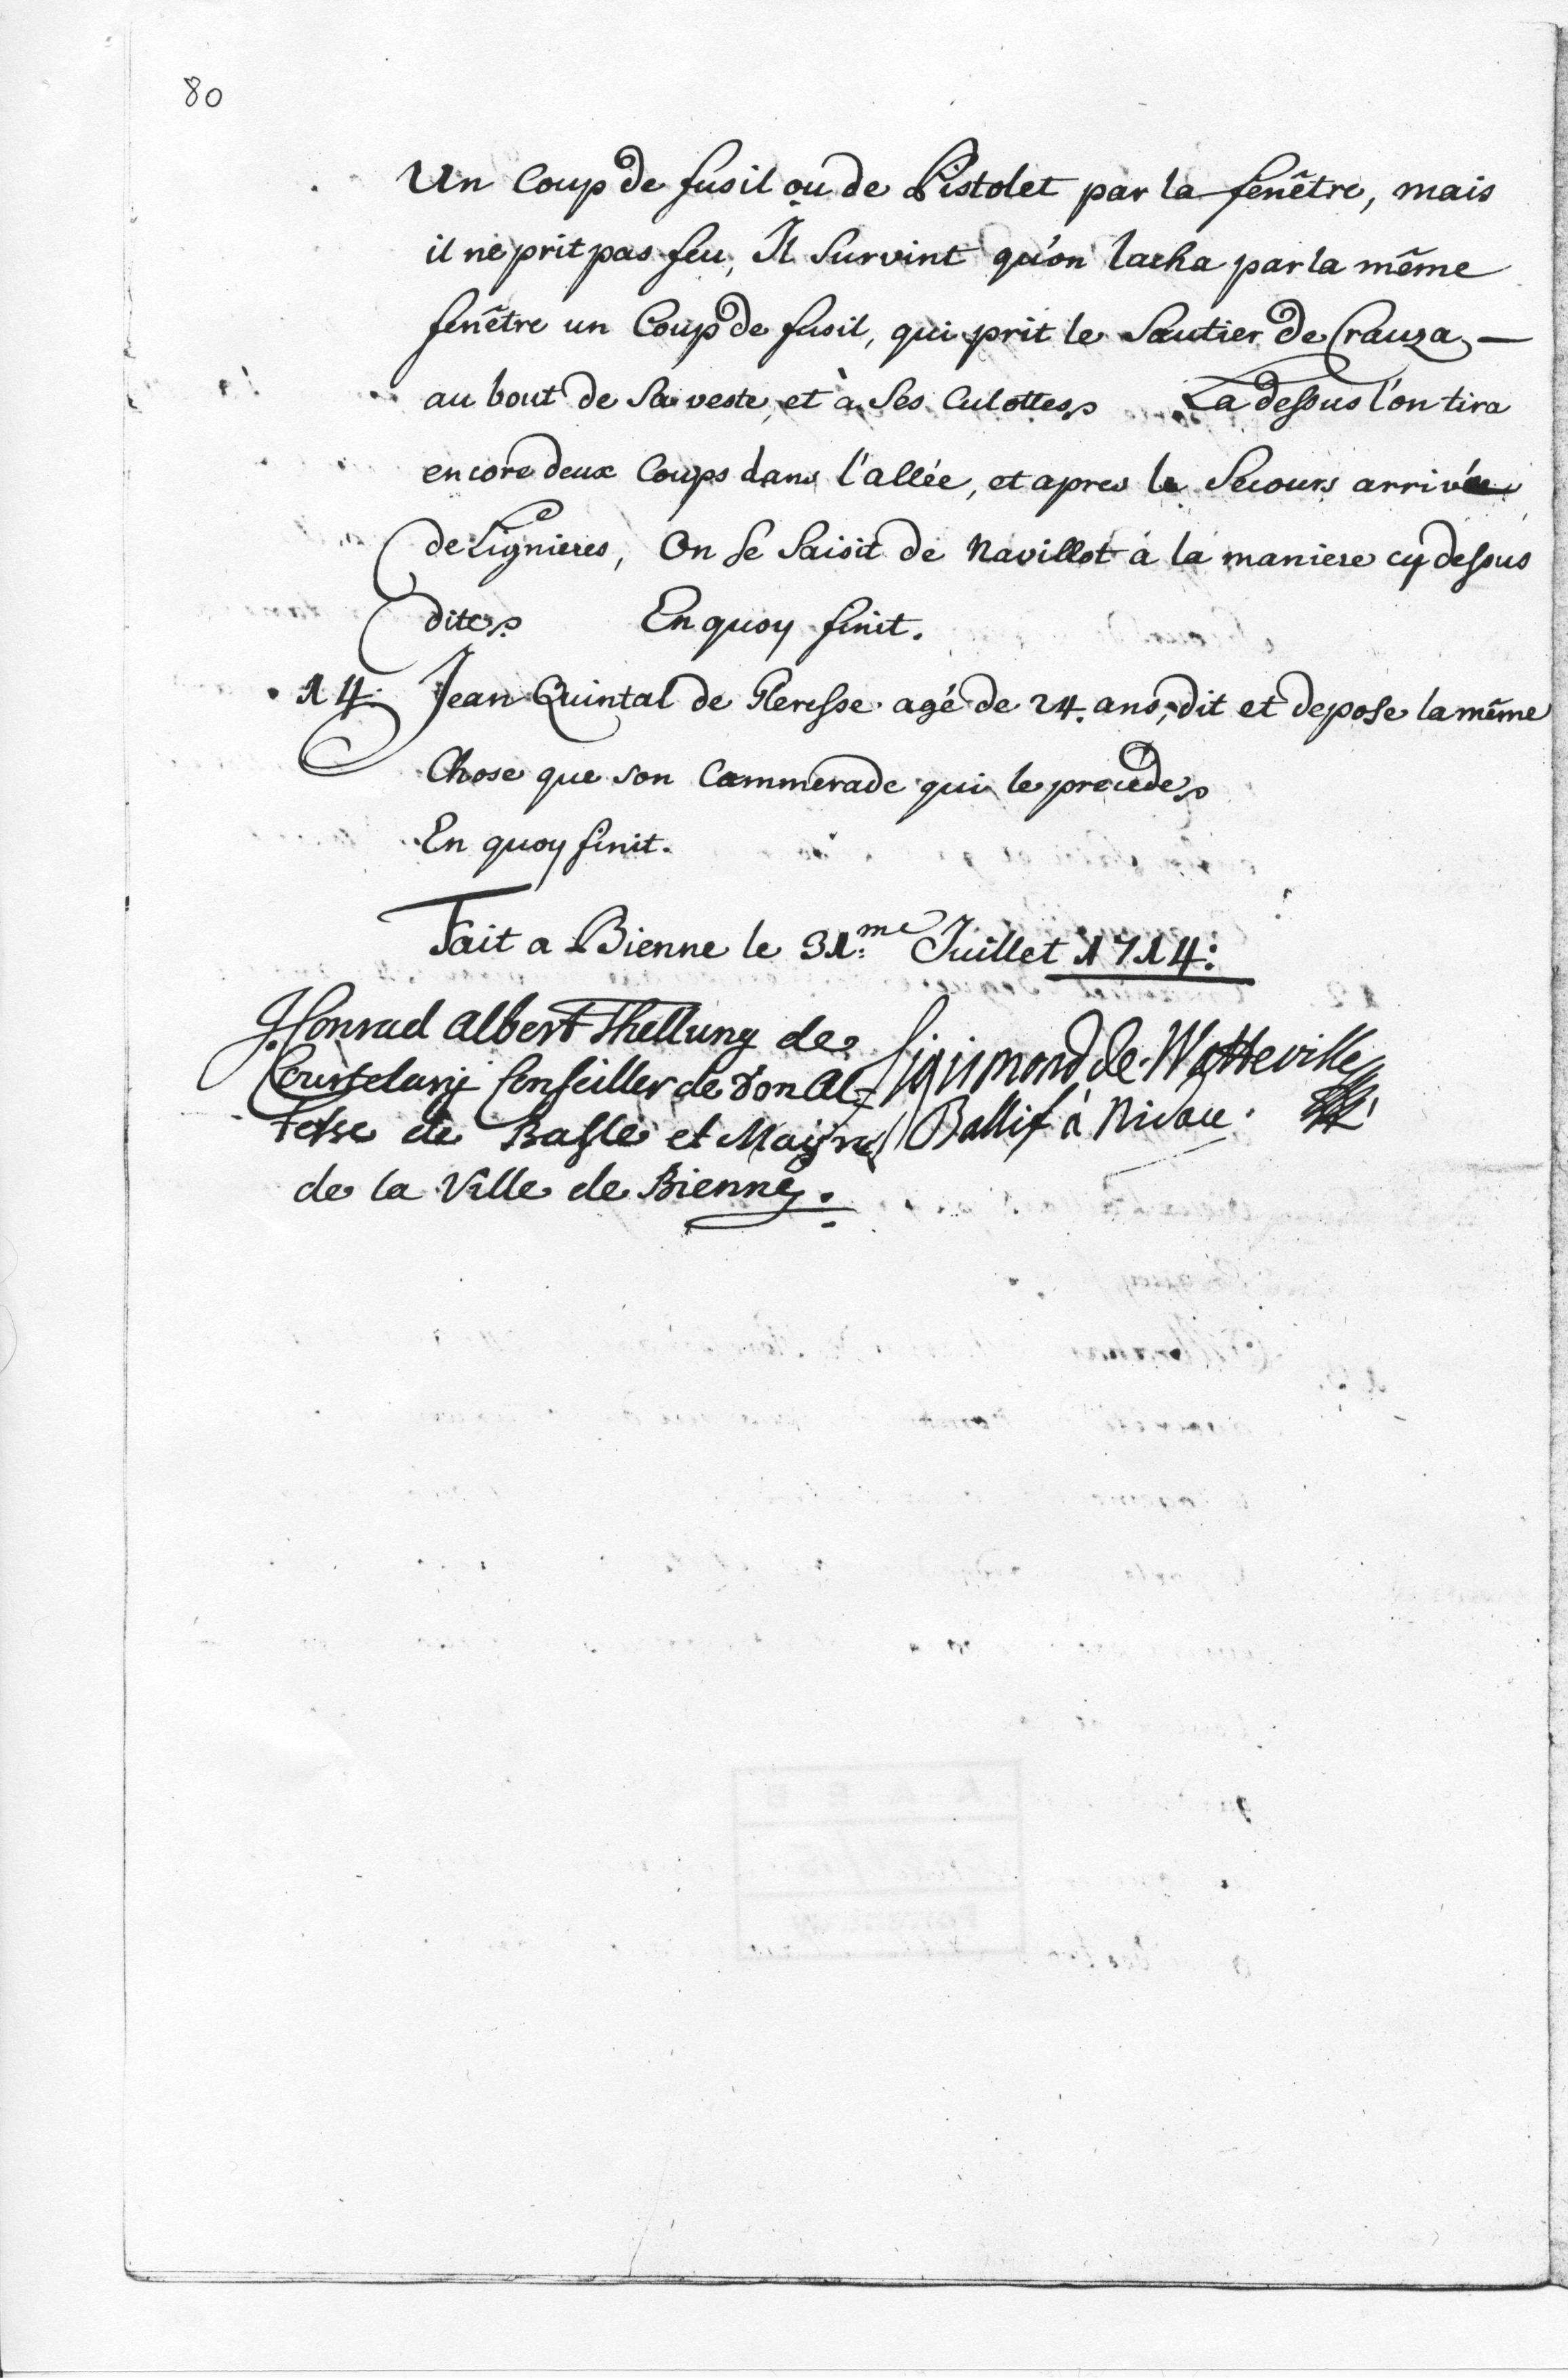 80
Un Coup de fusil ou de Pistolet par la fenêtre, mais
il ne prit pas feu, Il Survint qu'on lacha par la même
fenêtre un Coup de fusil, qui prit le Sautier de Crauza –
au bout de Sa veste, et à Ses Culottes La dessus l'on tira
encore deux Coups dans l'allée, et apres le Secours arrivée
de Lignieres, On Se Saisit de Navillot à la maniere cy dessus
dite En quoy finit.
14. Jean Quintal de Gleresse agé de 24. ans, dit et depose la même
Chose que son Cammerade qui le precede
En quoy finit.
Fait a Bienne le 31.me Juillet 1714:
J. Conrad Albert Thellung de
Courtelary Conseiller de Son Al=
tesse de Basle et Mayre
de la Ville de Bienne.
Sigismond de Watteville
Ballif à Nidau.